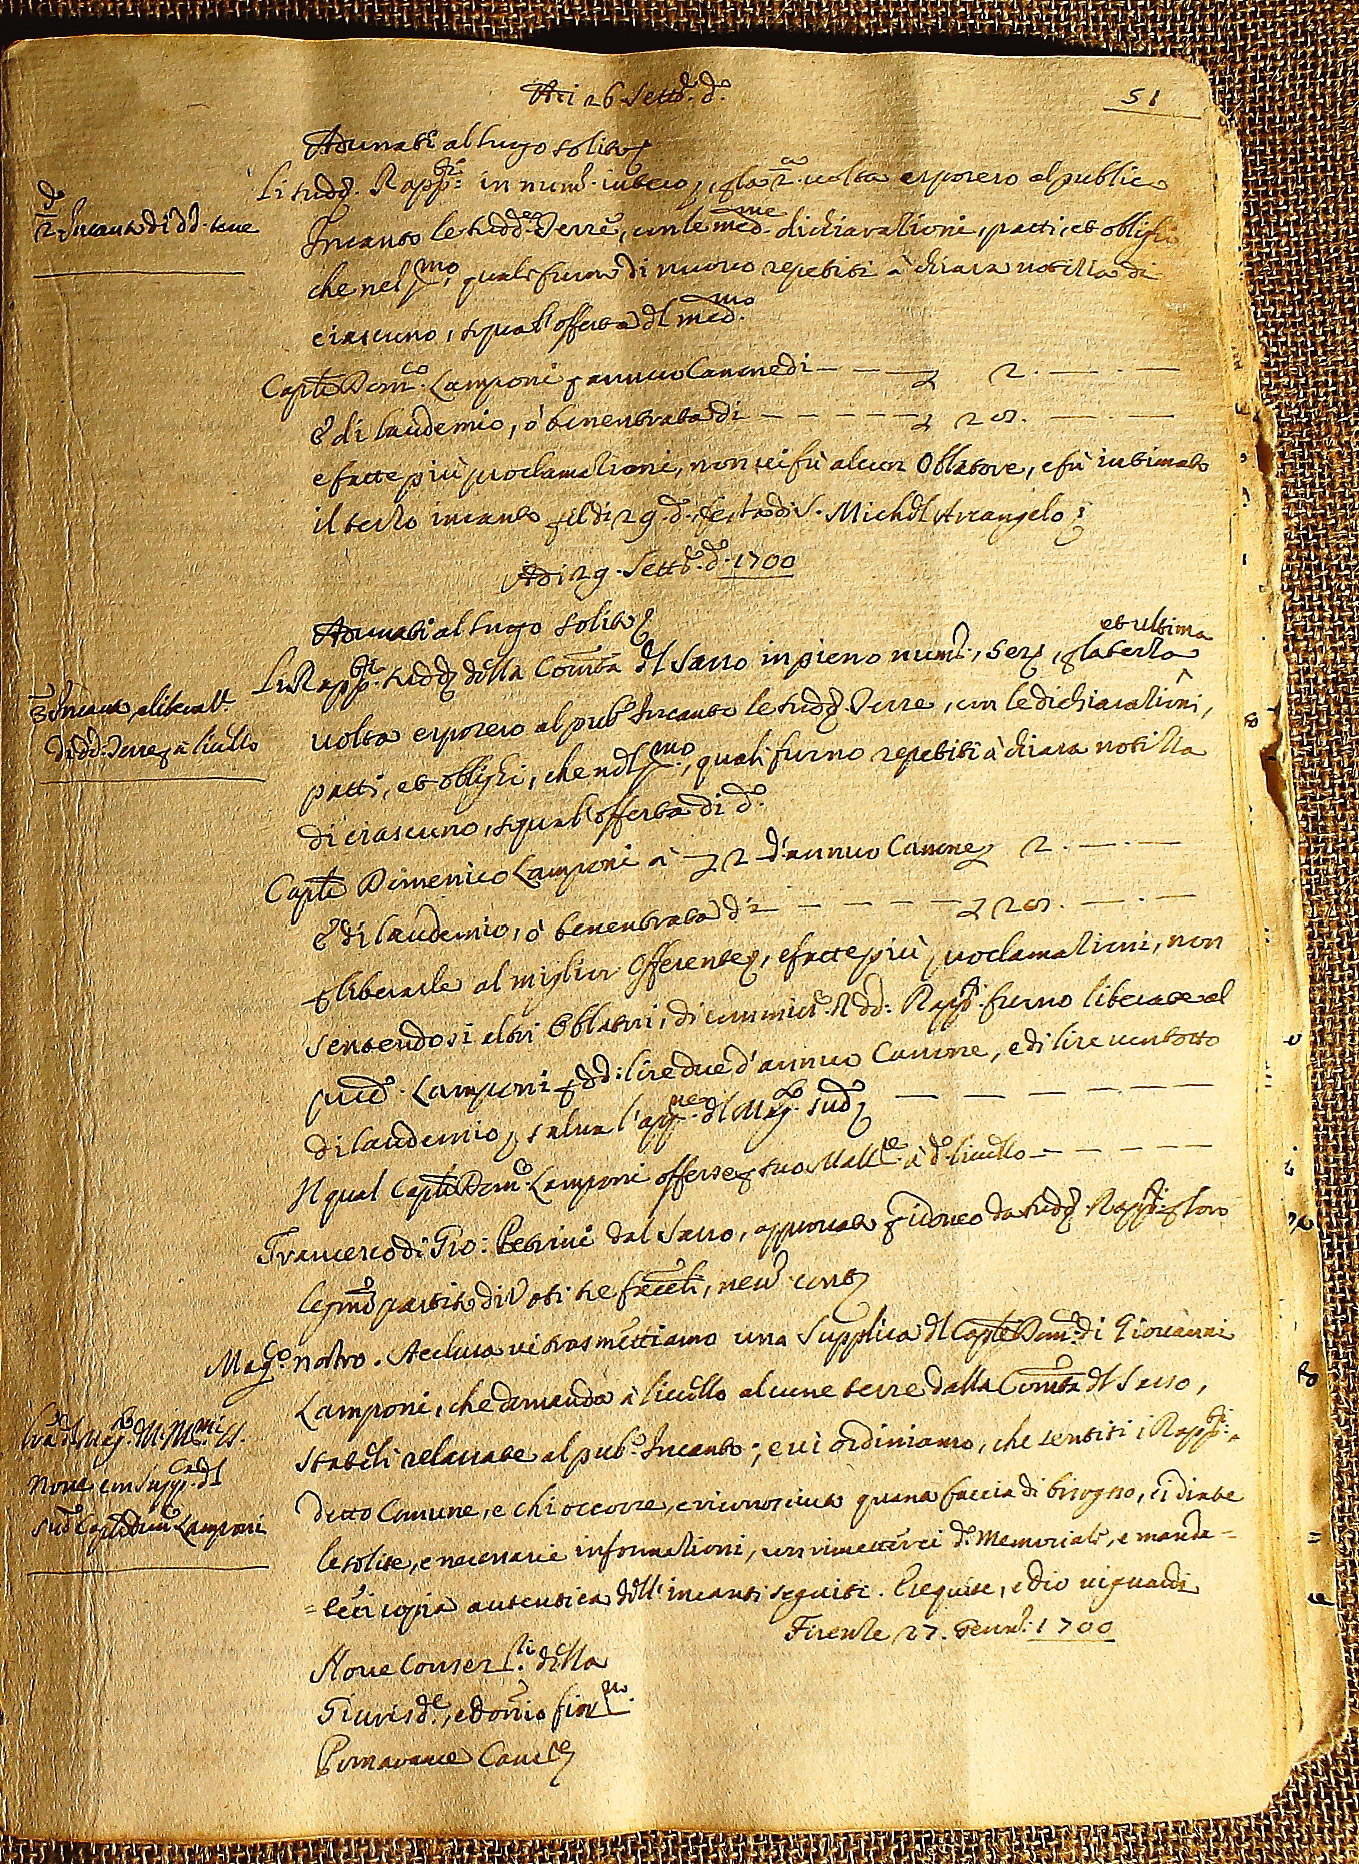 Adi 26 Sett.e d.o
51
Adunati al luogo solito
Li sudd. Rapp.ti in num. intero, p la 2.a volta esposero al publico
2. Incanto di dd. terre
Incanto le sudd.e Terre, con le med.me dichiarationi, patti, et oblighi
che nel p.mo, quali furon di nuovo repetiti à chiara notitia di
ciascuno, s qual' offerta del med.mo
Cap.te Dom.co Lamponi p annuo Canone di — — 2. — . —
E di laudemio, ò benentrata di — — — — — 28. — . —
e fatte più proclamationi, non vi fù alcun Oblatore, e fù intimato
il terzo incanto p il dì 29 d.o festa di S. Michel Arcangelo
Adi 29. Sett.e d.o 1700
Adunati al luogo solito
et ultima
Li Rapp.ti sudd. della Com.tà del Sasso in pieno num.o, p la terza
3. Incanto, e liberat.e
di dd. Terre à livello
volta esposero al pub.o Incanto le sudd. Terre, con le dichiarationi,
patti, et oblighi, che nel p.mo, quali furno repetiti à chiara notitia
di ciascuno, s qual' offerta di d.o
Cap.te Domenico Lamponi à 2 d'annuo Canone 2. — . —
E di laudemio, ò benentrata di — — — — 28. — . —
p liberarle al miglior Offerente, e fatte più proclamationi, non
sentendosi altri Oblatori, di commiss.e dd. Rapp.ti furno liberate al
pred.o Lamponi p dd. lire due d'annuo Canone, e di lire ventotto
di laudemio, salva l'app.ne del Mag.to sud.o — — — — — —
Il qual Cap.te Dom.co Lamponi offerse p suo Mall.re à d.o livello — — — —
Francesco di Gio: Petrini dal Sasso, approvato p idoneo da sudd. Rapp.ti p loro
leg.mo partito di Voti tre favoli, nes.o cont.
Mag.co nostro. Acclusa vi trasmettiamo una Supplica del Cap.te Dom.co di Giovanni
Lamponi, che domanda à livello alcune terre dalla Com.tà del Sasso,
stabili relassate al pub.o Incanto; e vi ordiniamo, che sentiti i Rapp.ti
Nove con supp.ca del
detto Comune, e chi occorre, e riconosciuto quanto faccia di bisogno, ci diate
sud.o Cap.te Dom.co Lamponi
le solite, e necessarie informationi, con rimetterci d.o Memoriale, e manda=
=teci copia autentica dell' incanti seguiti. Eseguite, e Dio vi guardi
Firenze 27. Genn.o 1700
Nove Conser.ri della
Giurisd.e, e Dominio fior.no
Canc.e